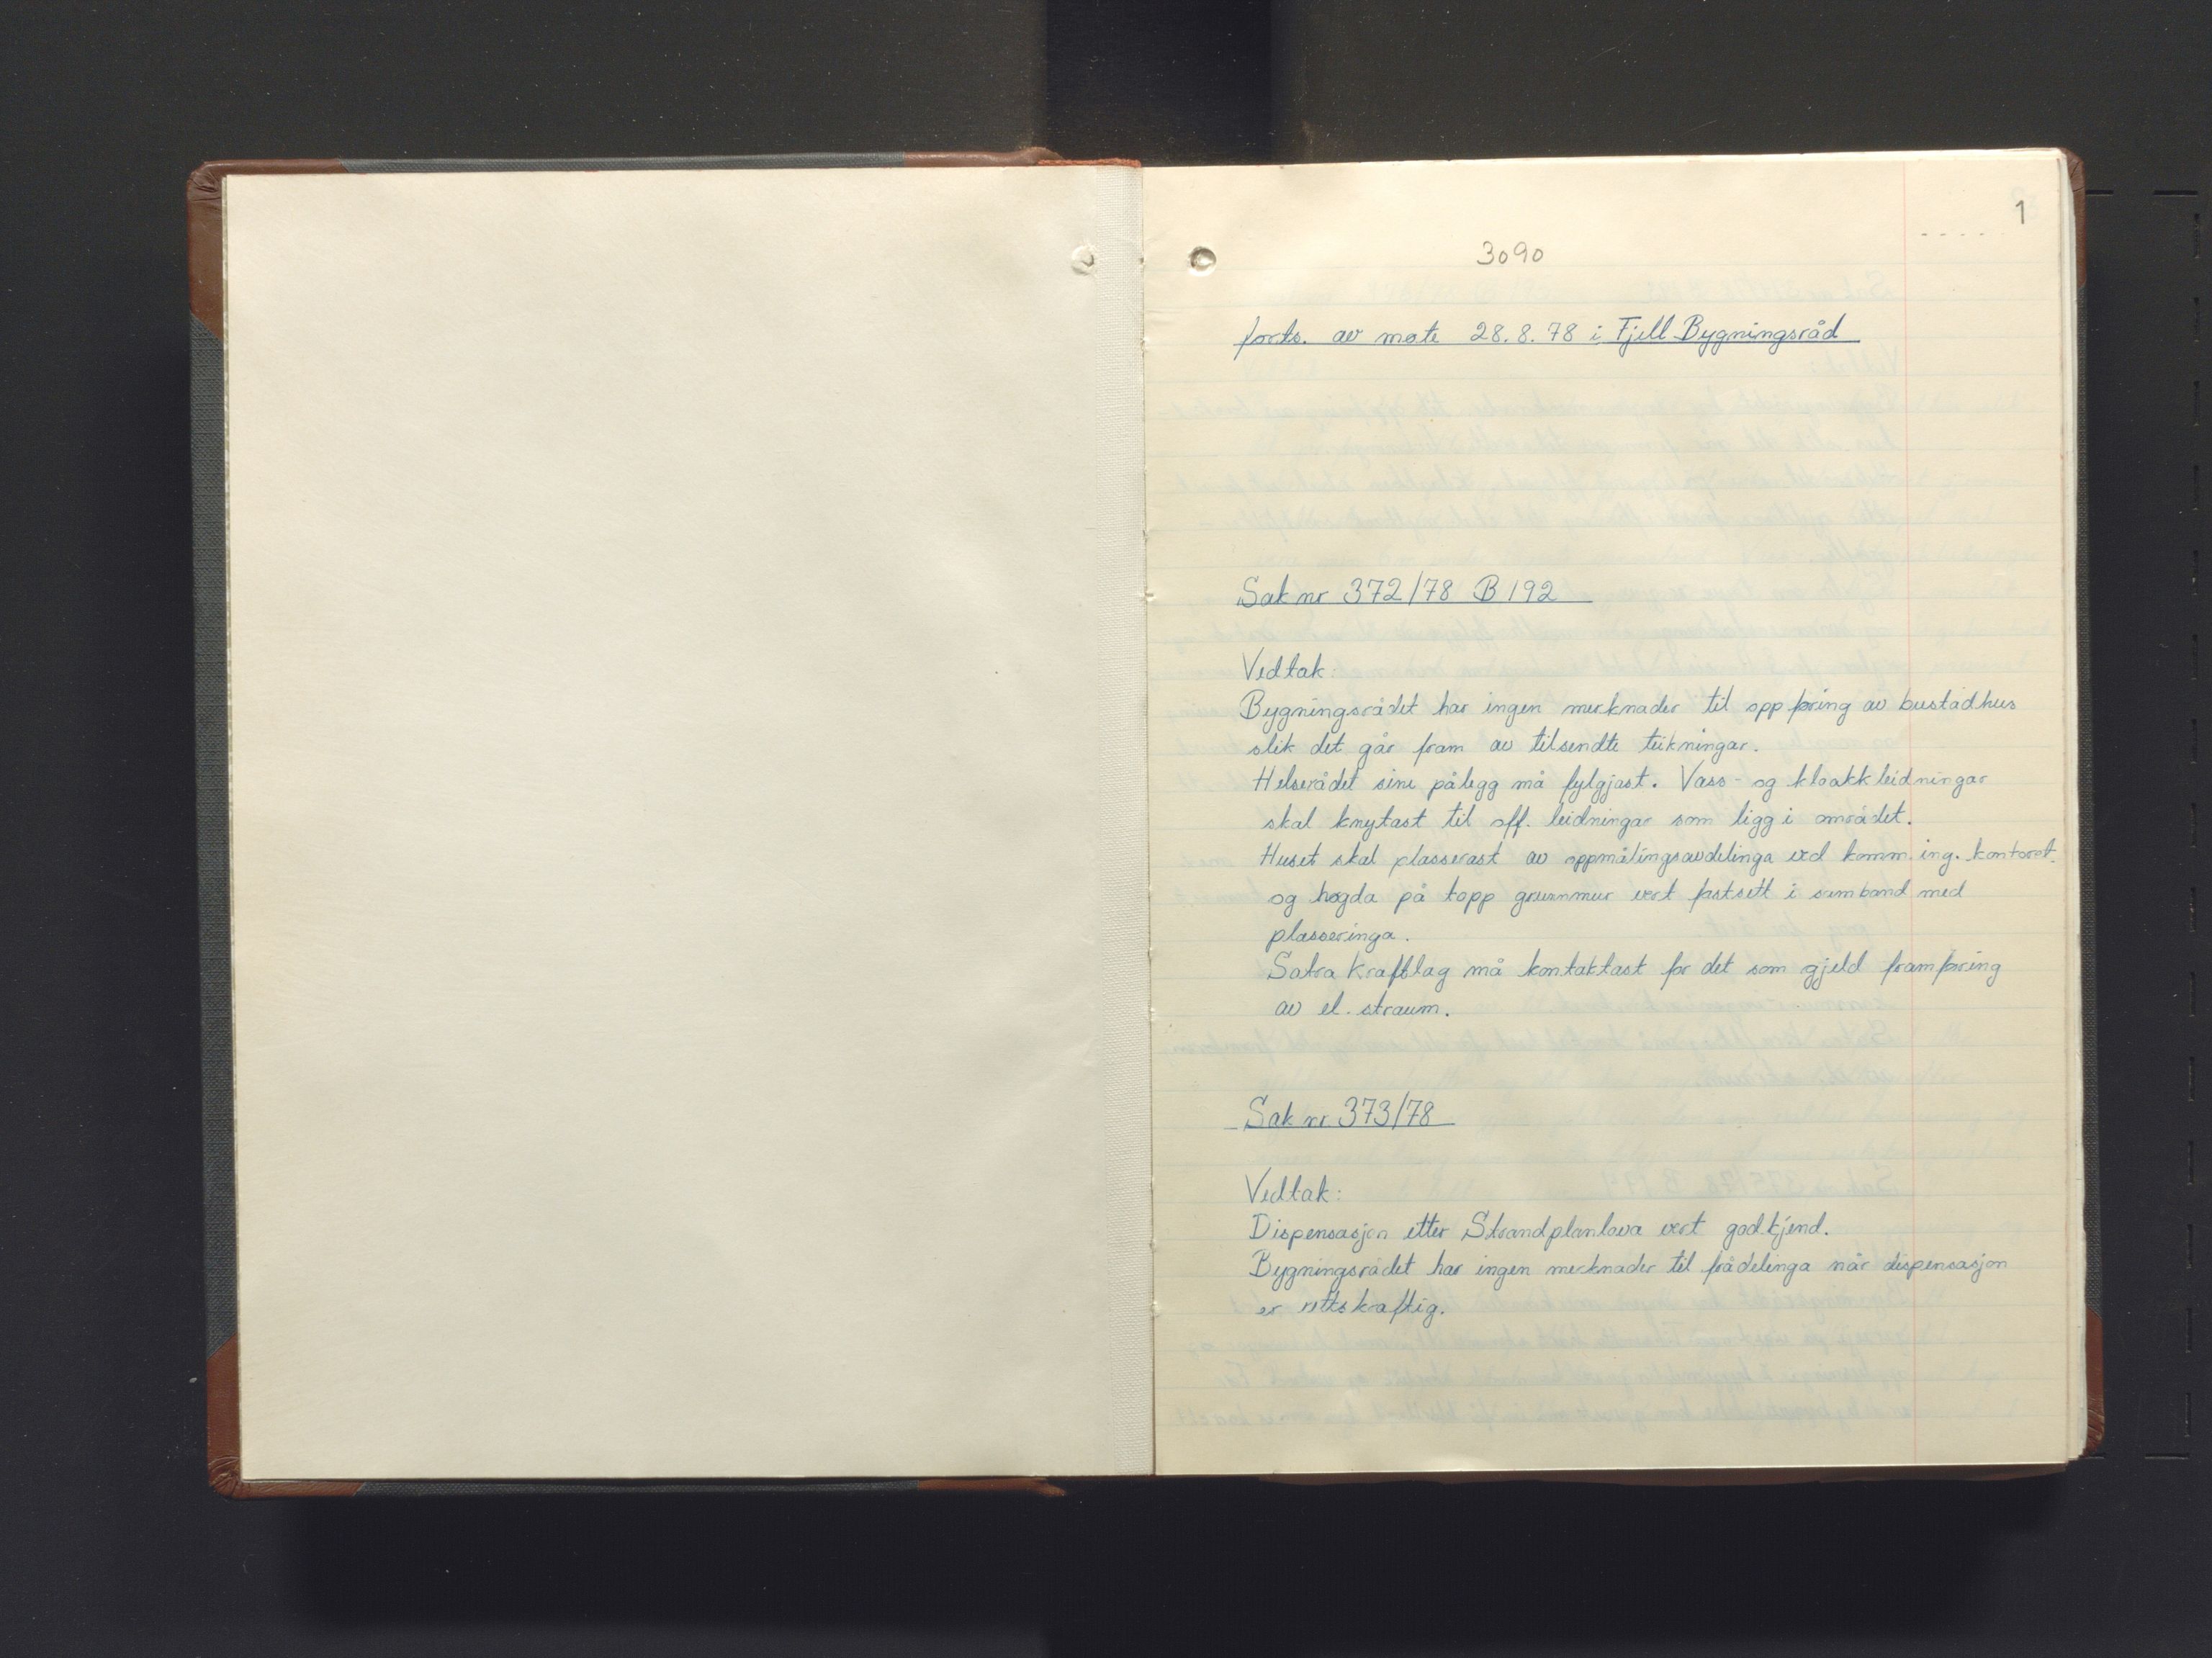 1
3090
forts. av møte 28.8.78 i Fjell Bygningsråd
Sak nr 372/78 B192
Vedtak:
Bygningsrådet har ingen merknader til oppføring av bustadhus
slik det går fram av tilsendte teikningar.
Helserådet sine pålegg må fylgjast. Vass- og kloakkleidningar
skal knytast til off. leidningar som ligg i området.
Huset skal plasserast av oppmålingsavdelinga ved komm. ing. kontoret
og høgda på topp grunnmur vert fastsett i samband med
plasseringa.
Sotra Kraftlag må kontaktast for det som gjeld framføring
av el. straum.
Sak nr 373/78
Vedtak:
Dispensasjon etter Strandplanlova vert godkjend.
Bygningsrådet har ingen merknader til frådelinga når dispensasjon
er rettskraftig.